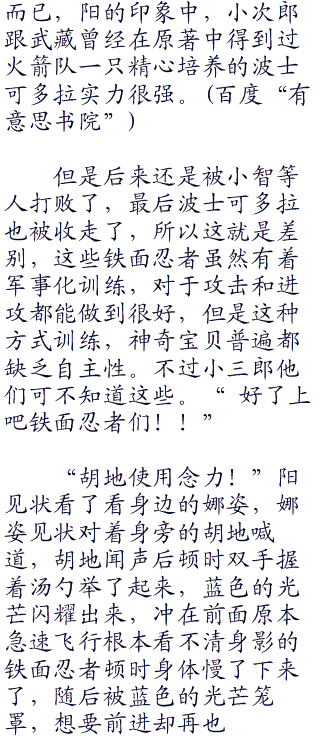 而已，阳的印象中，小次郎
跟武藏曾经在原著中得到过
火箭队一只精心培养的波士
可多拉实力很强。(百度“有
意思书院”)
但是后来还是被小智等
人打败了，最后波士可多拉
也被收走了，所以这就是差
别，这些铁面忍者虽然有着
军事化训练，对于攻击和进
攻都能做到很好，但是这种
方式训练，神奇宝贝普遍都
缺乏自主性。不过小三郎他
们可不知道这些。“ 好了上
吧铁面忍者们！！”
“胡地使用念力！”阳
见状看了看身边的娜姿，娜
姿见状对着身旁的胡地喊
道，胡地闻声后顿时双手握
着汤勺举了起来，蓝色的光
芒闪耀出来，冲在前面原本
急速飞行根本看不清身影的
铁面忍者顿时身体慢了下来
了，随后被蓝色的光芒笼
罩，想要前进却再也